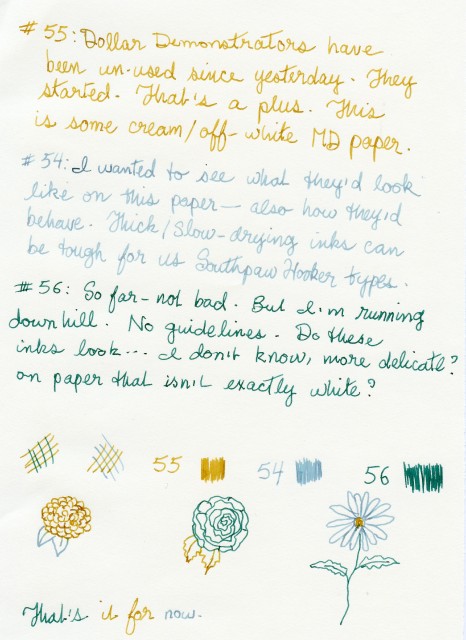 # 55: Dollar Demonstrators have
been un-used since yesterday. They
started. That's a plus. This
is some cream/off-white MD paper.
#54: I wanted to see what they'd look
like on this paper — also how they'd
behave. Thick/Slow-drying inks can
be tough for us Southpaw Hooker types.
#56: So far - not bad. But I'm running
downhill. No guidelines. Do these
inks look... I don't know, more delicate?
on paper that isn't exactly white?
55 54 56
That's it for now.